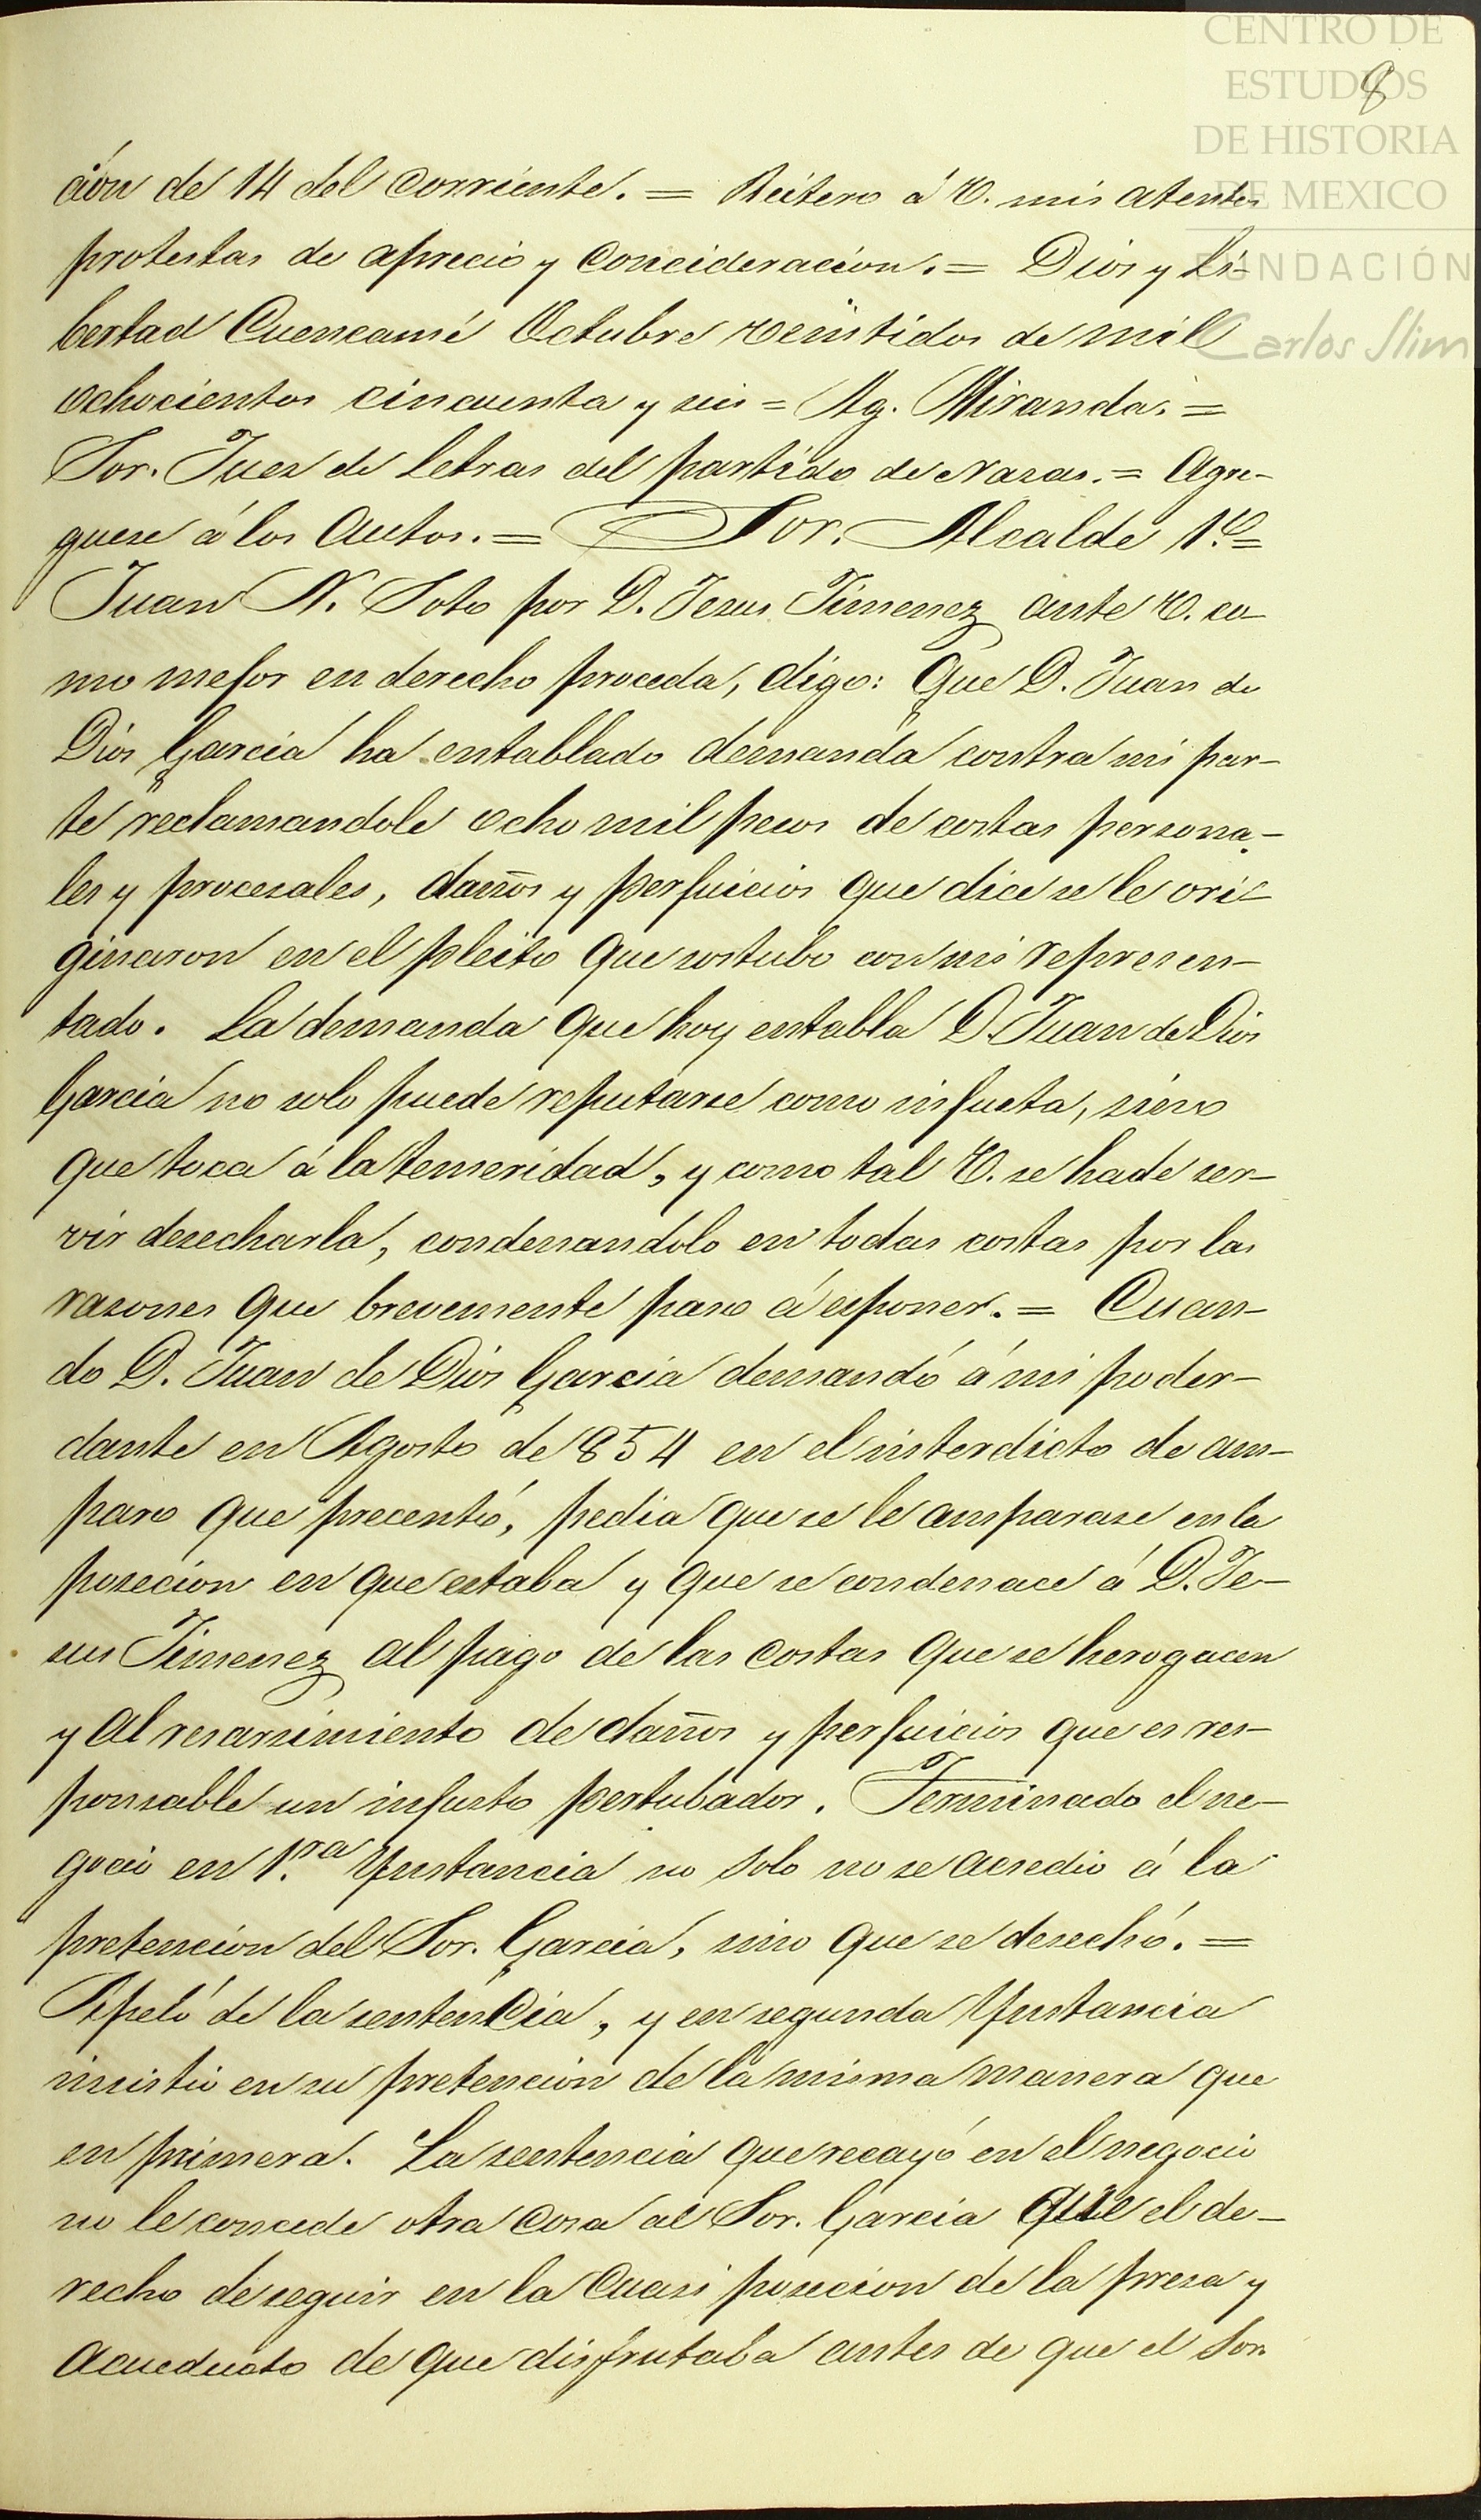 CENTRO DE
ESTUDIOS
DE HISTORIA
DE MEXICO
FUNDACIÓN
Carlos Slim
8
ción de 14 del Corriente. = Reitero á V. mis atentas
protestas de aprecio y Concideracion. = Dios y Li-
bertad Cuencamé Octubre veintidos de mil
ochocientos cincuenta y seis = Ag. Miranda. =
Sor. Juez de Letras del partido de Nazas. = Agre-
guese á los Autos. = Sor. Alcalde 1.º =
Juan N. Soto por D. Jesus Jimenez ante V. co-
mo mejor en derecho proceda, digo: Que D. Juan de
Dios Garcia ha entablado demanda contra mi par-
te reclamandole ocho mil pesos de costas persona-
les y procesales, daños y perjuicios que dice se le ori-
ginaron en el pleito que sostubo con mi represen-
tado. La demanda que hoy entabla D. Juan de Dios
Garcia no solo puede reputarse como injusta, sino
que toca á la temeridad, y como tal V. se ha de ser-
vir desecharla, condenandolo en todas costas por las
razones que brevemente paso á esponer. = Cuan-
do D. Juan de Dios Garcia demandó á mi poder-
dante en Agosto de 854 en el interdicto de am-
paro que precentó, pedia que se le amparase en la
posecion en que estaba y que se condenace á D. Je-
sus Jimenez al pago de las costas que se herogacen
y al resarsimiento de daños y perjuicios que es res-
ponsable un injusto pertubador. Terminado el ne-
gocio en 1.ra Ynstancia no solo no se acsedio á la
pretencion del Sor. Garcia, sino que se desechó. =
Apeló de la sentencia, y en segunda Ynstancia
insistio en su pretencion de la misma manera que
en primera. La sentencia que recayó en el negocio
no le concede otra cosa al Sor. Garcia que el de-
recho de seguir en la Cuasi posecion de la presa y
acueducto de que disfrutaba antes de que el Sor.